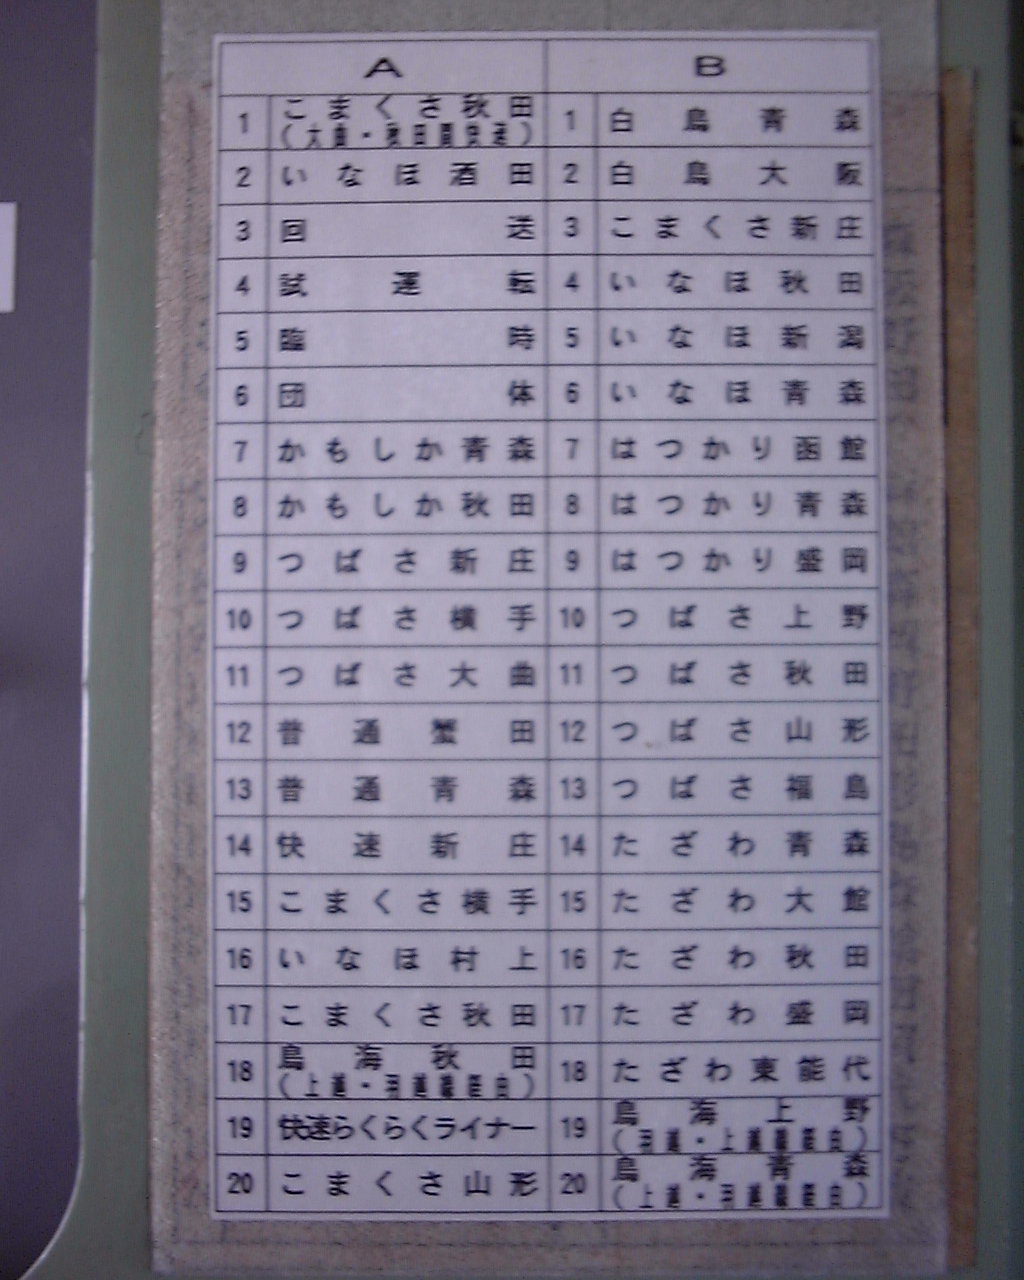 A B
1 こまくさ秋田 1 白鳥青森
(大曲・秋田間快速)
2 いなほ酒田 2 白鳥大阪
3 回送 3 こまくさ新庄
4 試運転 4 いなほ秋田
5 臨時 5 いなほ新潟
6 団体 6 いなほ青森
7 かもしか青森 7 はつかり函館
8 かもしか秋田 8 はつかり青森
9 つばさ新庄 9 はつかり盛岡
10 つばさ横手 10 つばさ上野
11 つばさ大曲 11 つばさ秋田
12 普通蟹田 12 つばさ山形
13 普通青森 13 つばさ福島
14 快速新庄 14 たざわ青森
15 こまくさ横手 15 たざわ大館
16 いなほ村上 16 たざわ秋田
17 こまくさ秋田 17 たざわ盛岡
18 鳥海秋田 18 たざわ東能代
(上越・羽越線経由)
19 快速らくらくライナー 19 鳥海上野
(羽越・上越線経由)
20 こまくさ山形 20 鳥海青森
(上越・羽越線経由)